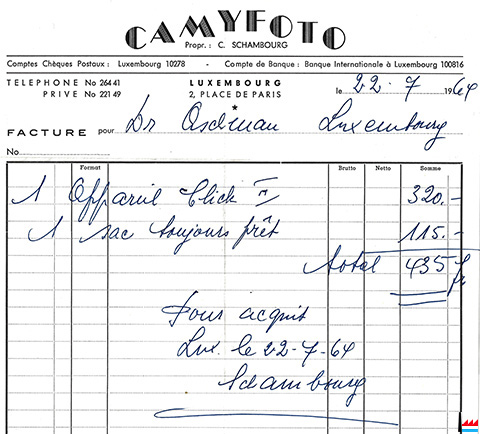 CAMYFOTO
Propr.: C. SCHAMBOURG
Comptes Chèques Postaux: Luxembourg 10278 - Compte de Banque: Banque Internationale à Luxembourg 100816
TELEPHONE No 264 41
PRIVE No 221 49
LUXEMBOURG
2, PLACE DE PARIS
le 22-7 1964
FACTURE pour Dr Aschman Luxembourg
No
Format Brutto Netto Somme
1 Appareil Click II 320.-
1 sac toujours prêt 115.-
total 435 fr
Pour acquit
Lux. le 22-7-64
Schambourg